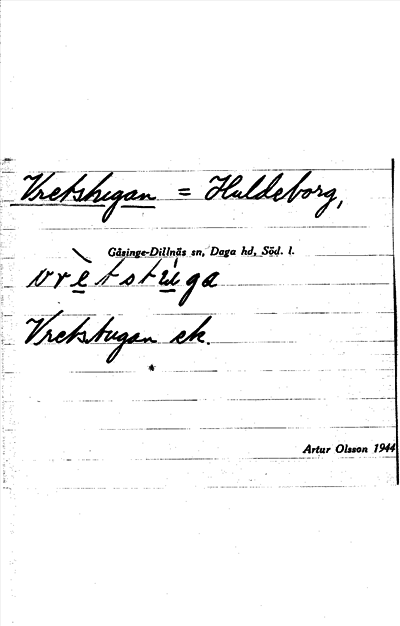 Vretstugan = Huldeborg,
Gåsinge-Dillnäs sn, Daga hd, Söd. l.
vrètstúga
Vretstugan ek.
Artur Olsson 1944